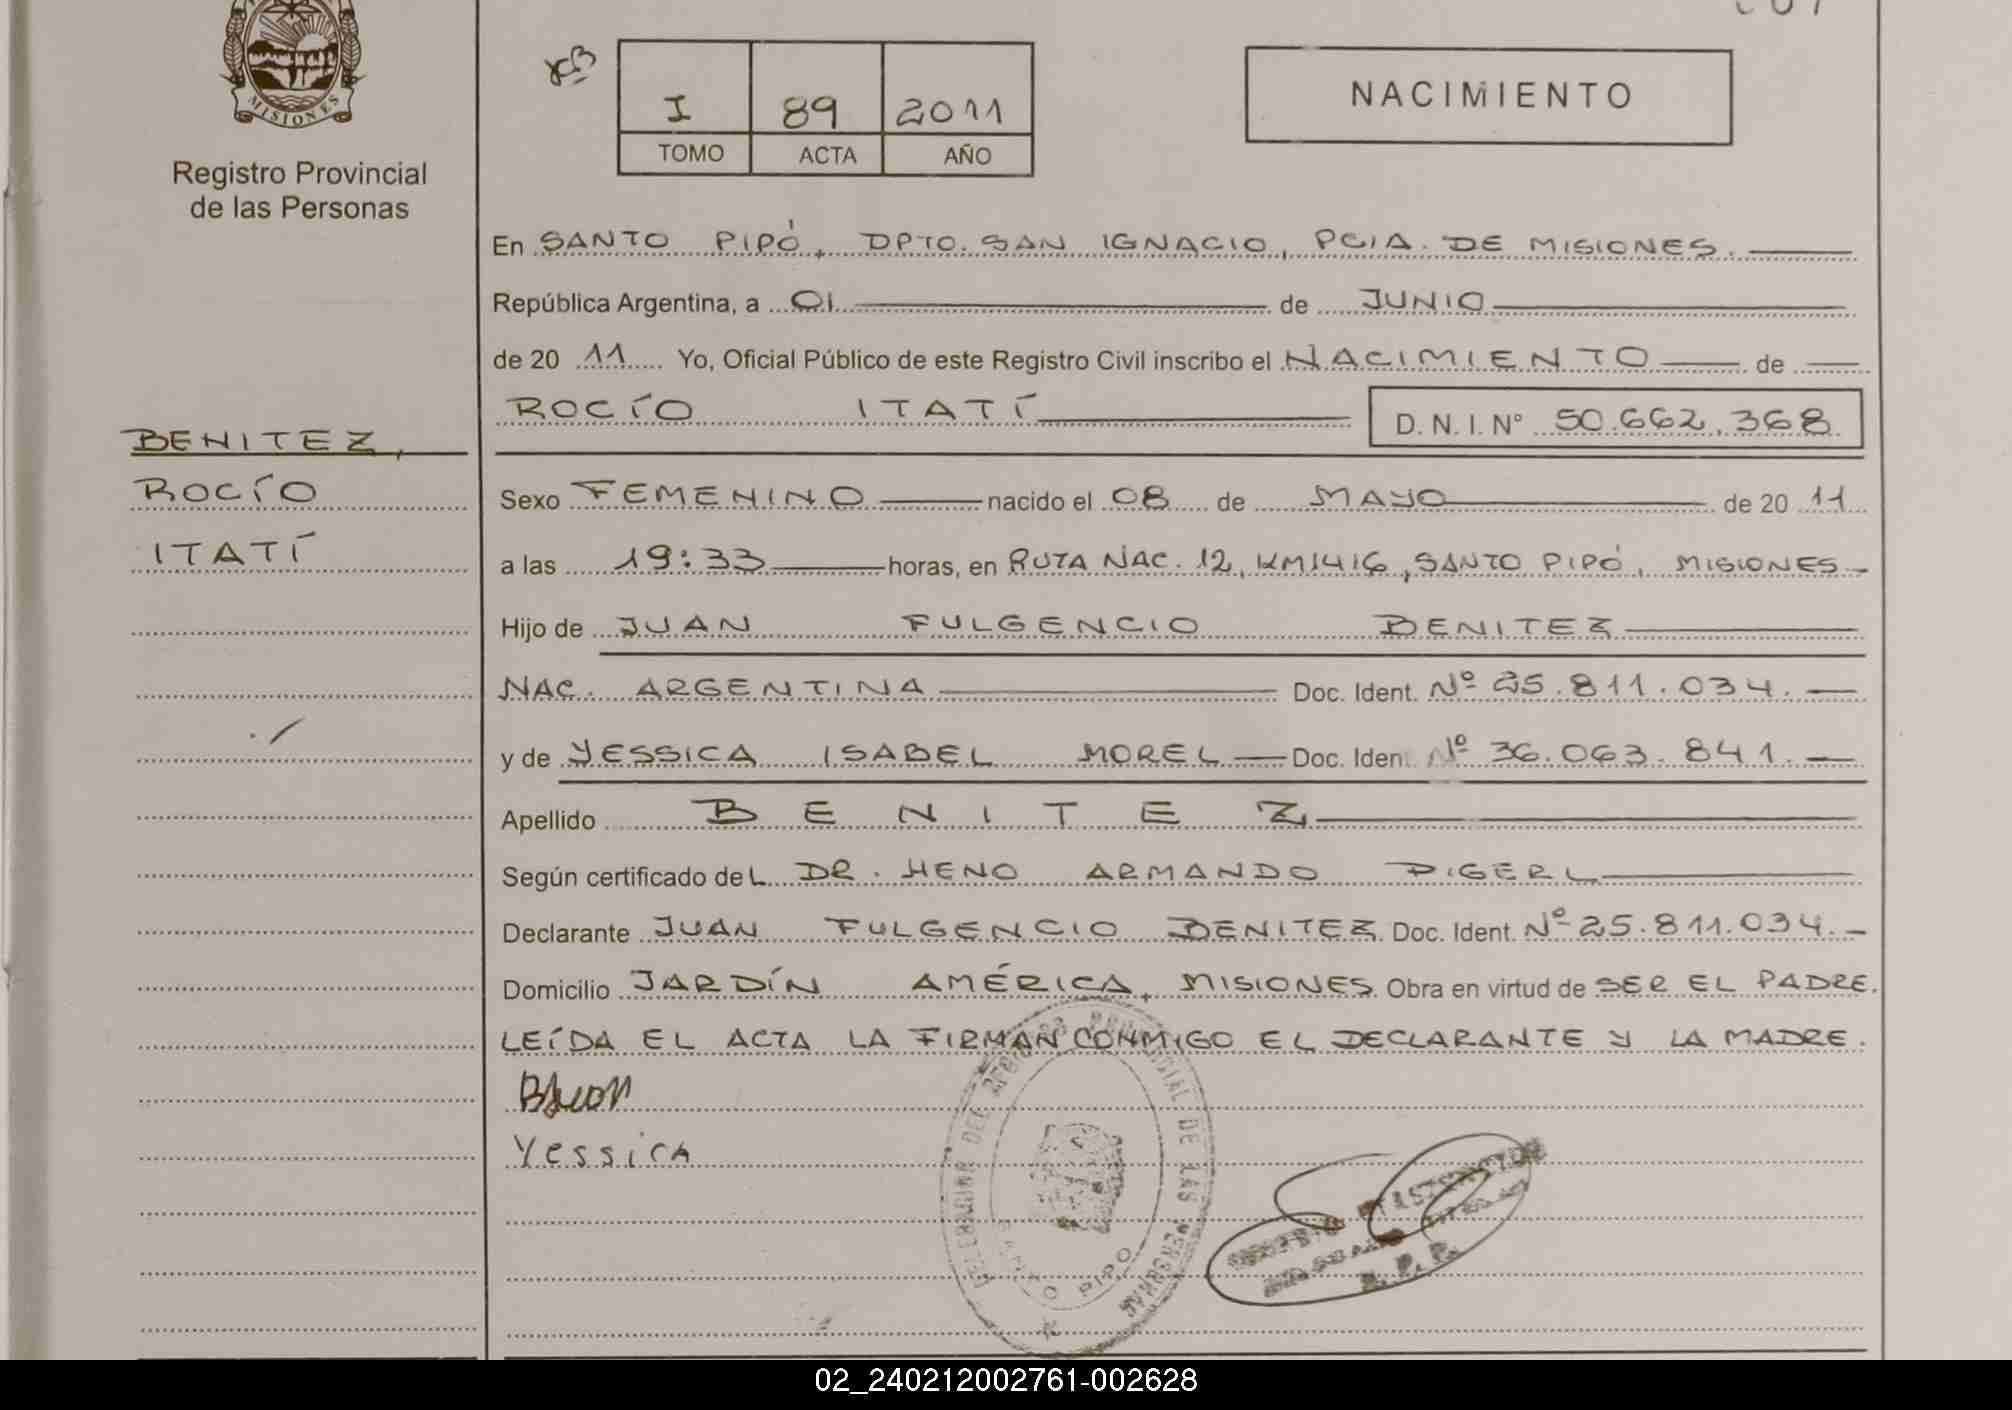 MISIONES
Registro Provincial
de las Personas
I 89 2011
TOMO ACTA AÑO
NACIMIENTO
En SANTO PIPÓ, DPTO. SAN IGNACIO, PCIA. DE MISIONES.
República Argentina, a 01 de JUNIO
de 20 11 Yo, Oficial Público de este Registro Civil inscribo el NACIMIENTO de
ROCÍO ITATÍ D. N. I. Nº 50.662.368
BENITEZ,
ROCÍO
ITATÍ
Sexo FEMENINO nacido el 08 de MAYO de 20 11
a las 19:33 horas, en RUTA NAC. 12, KM1416, SANTO PIPÓ, MISIONES
Hijo de JUAN FULGENCIO BENITEZ
NAC. ARGENTINA Doc. Ident. Nº 25.811.034.
y de YESSICA ISABEL MOREL Doc. Ident Nº 36.063.841.
Apellido BENITEZ
Según certificado deL DR. HENO ARMANDO PIGERL
Declarante JUAN FULGENCIO BENITEZ. Doc. Ident. Nº 25.811.034.
Domicilio JARDÍN AMÉRICA, MISIONES. Obra en virtud de SER EL PADRE.
LEÍDA EL ACTA LA FIRMAN CONMIGO EL DECLARANTE Y LA MADRE.
Yessica
DEL REGISTRO PROVINCIAL DE LAS PERSONAS
SANTO PIPO
R. P. P.
02_240212002761-002628